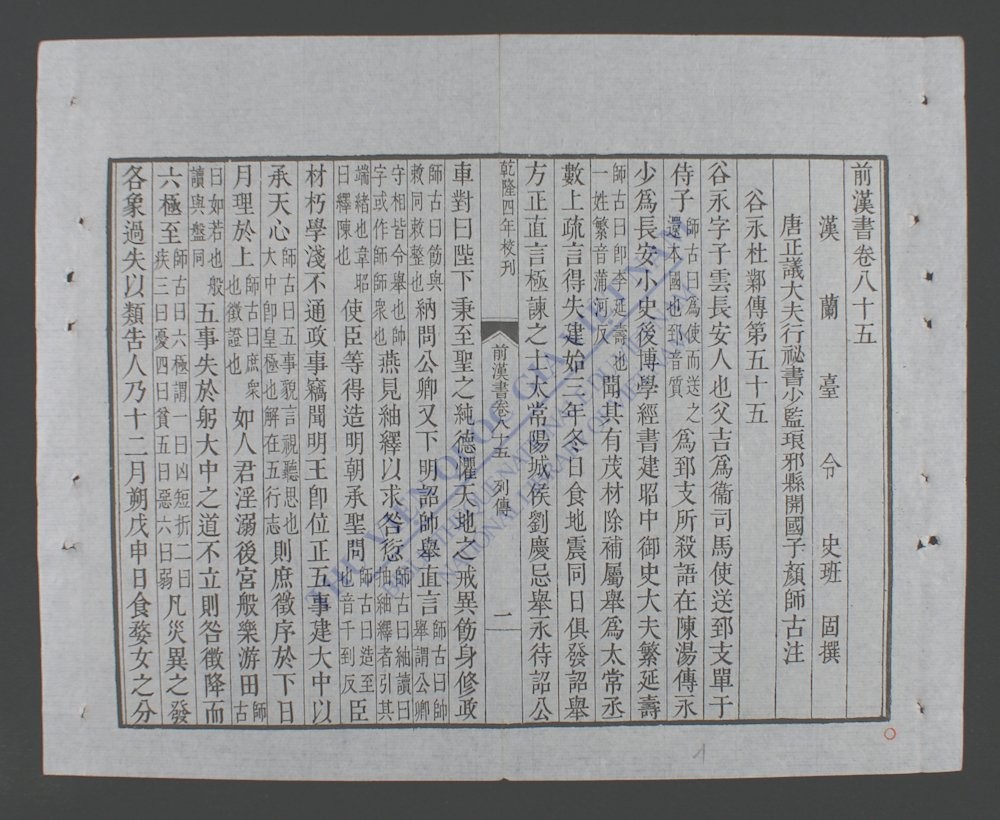 前漢書卷八十五
漢蘭臺令史班固撰
唐正議大夫行祕書少監琅邪縣開國子顏師古注
谷永杜鄴傳第五十五
谷永字子雲長安人也父吉爲衞司馬使送郅支單于
侍子師古曰爲使而送之還本國也郅音質爲郅支所殺語在陳湯傳永
少爲長安小史後博學經書建昭中御史大夫繁延壽
師古曰卽李延壽也一姓繁音蒲河人聞其有茂材除補屬舉爲太常丞
數上疏言得失建始三年冬日食地震同日俱發詔舉
方正直言極諫之士太常陽城侯劉慶忌舉永待詔公
乾隆四年校刊
前漢書卷八十五 列傳
一
車對曰陛下秉至聖之純德懼天地之戒異飭身修政
師古曰飭與敕同敕整也納問公卿又下明詔帥舉直言師古曰帥舉謂公卿
守相皆令舉也帥字或作師師衆也燕見紬繹以求咎愆師古曰紬讀曰抽紬繹者引其
端緒也韋昭曰繹陳也使臣等得造明朝承聖問師古曰造至也音千到反臣
材朽學淺不通政事竊聞明王卽位正五事建大中以
承天心師古曰五事貌言視聽思也大中卽皇極也解在五行志則庶徵序於下日
月理於上師古曰庶衆也徵證也如人君淫溺後宮般樂游田師古
曰如若也般讀與盤同五事失於躬大中之道不立則咎徵降而
六極至師古曰六極謂一曰凶短折二曰疾三曰憂四曰貧五曰惡六曰弱凡災異之發
各象過失以類告人乃十二月朔戊申日食婺女之分
THƯ VIỆN QUỐC GIA VIỆT NAM
BIBLIOTHEQUE NATIONALE DU VIETNAM
NATIONAL LIBRARY OF VIETNAM
1